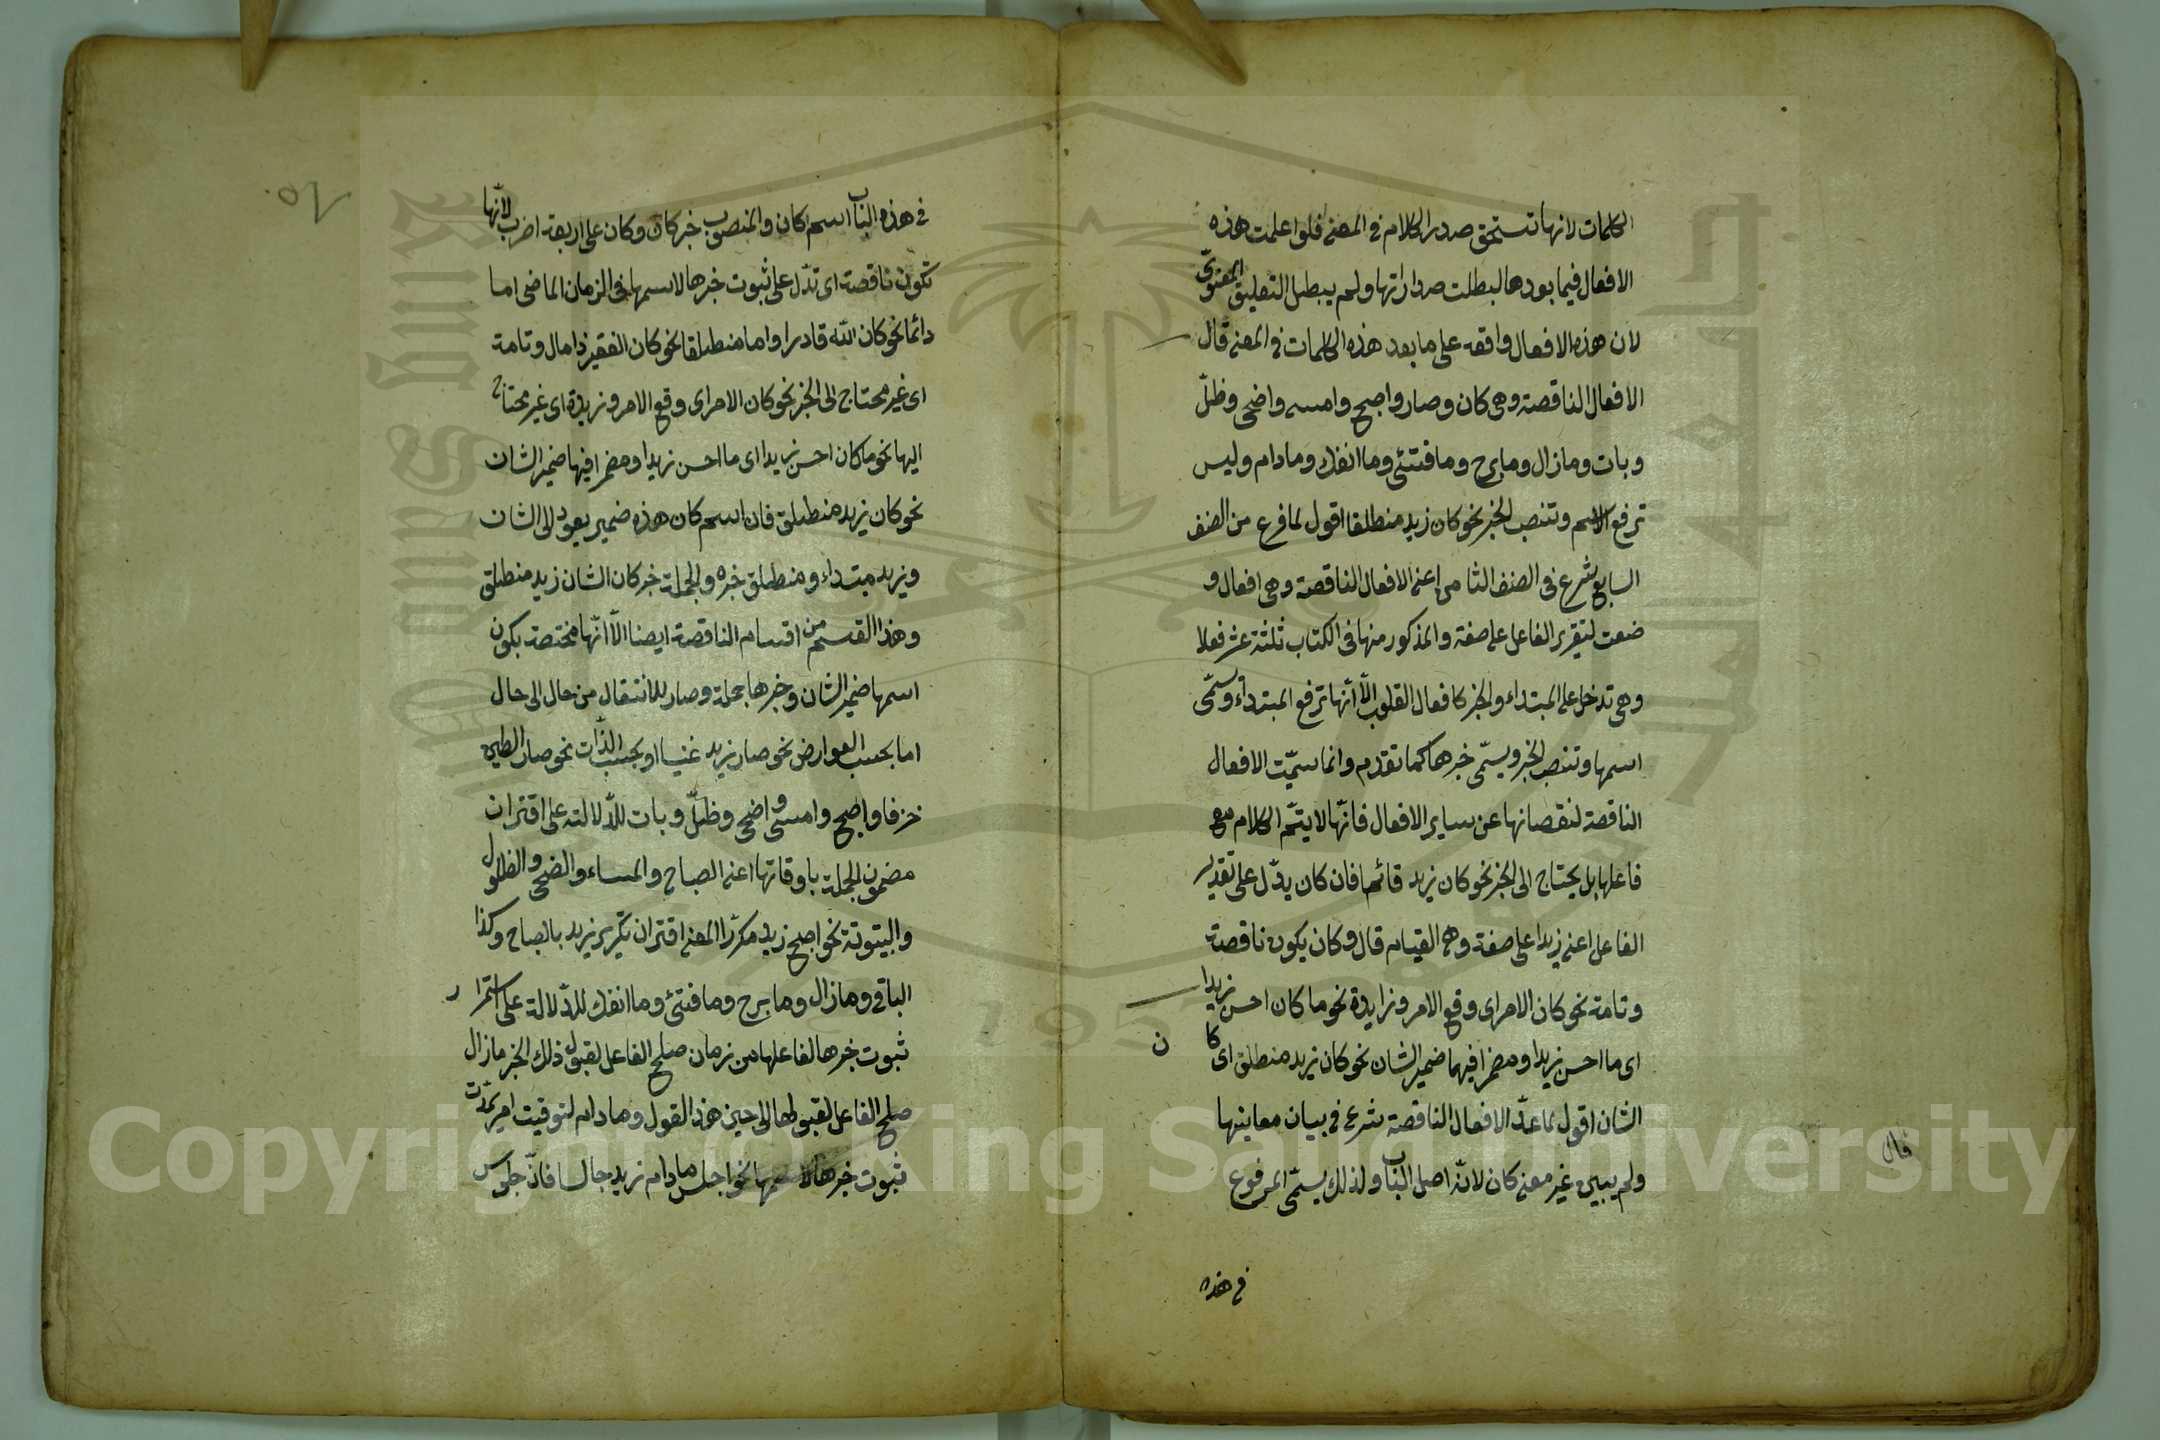 الكلمات لانها تستحق صدر الكلام في المعنى فلو اعلمت هذه
الافعال فيما بعدها لبطلت صدارتها ولم يبطل التعليق المعنوي
لان هذه الافعال واقعه على ما بعد هذه الكلمات في المعنى قال
الافعال الناقصة وهي كان وصار واصبح وامسى واضحى وظلّ
وبات وما زال وما برح وما فتئ وما انفك وما دام وليس
ترفع الاسم وتنصب الخبر نحو كان زيد منطلقا اقول لما فرغ من الصنف
السابع شرع في الصنف الثامن اعنى الافعال الناقصة وهي افعال و
ضعت لتقرير الفاعل على صفة والمذكور منها في الكتاب ثلثة عشر فعلا
وهي تدخل على المبتداء والخبر كافعال القلوب الّا أنّها ترفع المبتداء وسمّى
اسمها وتنصب الخبر ويسمّى خبرها كما تقدّم وانما سمّيت الافعال
الناقصة لنقصانها عن ساير الافعال فانّها لا يتمّ الكلام مع
فاعلها بل يحتاج الى الخبر نحو كان زيد قائما فان كان يدّل على تقدير
الفاعل اعنى زيدا على صفة وهي القيام قال وكان يكون ناقصة
وتامة نحو كان الامر اى وقع الامر وزايدة نحو ما كان احسن زيدا
اى ما احسن زيدا ومضمرا فيها ضمير الشان نحو كان زيد منطلق اى كا ن
الشان اقول لما عدّ الافعال الناقصة شرع في بيان معاينها
قال
ولم يبين غير معنى كان لانّه اصل الباب ولذلك يسمّى المرفوع
في هذه
٥٦
في هذه الباب اسم كان والمنصوب خبر كان وكان على اربعة اضرب لأنّها
تكون ناقصة اى تدّل على ثبوت خبرها لاسمها في الزمان الماضى اما
دائما نحو كان الله قادرا واما منطلقا نحو كان الفقير ذا مال وتامة
اى غير محتاج الى الخبر نحو كان الامر اى وقع الامر وزيدة اى غير محتاج
اليها نحو ما كان احسن زيدا اى ما احسن زيدا ومضمرا فيها ضمير الشان
نحو كان زيد منطلق فان اسم كان هذه ضمير يعود الى الشان
وزيد مبتداء ومنطلق خبره والجملة خبر كان الشان زيد منطلق
وهذا القسم من اقسام الناقصة ايضا الّا انّها مختصة بكون
اسمها ضمير الشان وخبرها جملة وصار للانتقال من حال الى حال
اما بحسب العوارض نحو صار زيد غنيا او بحسب الذّات نحو صار الطين
خزفا واصبح وامسى واضحى وظلّ وبات للدّلالته على اقتران
مضمون الجملة باوقاتها اعنى الصباح والمساء والضحى والظلول
والبيتوتة نحو اصبح زيد مكرّرا المعنى اقتران تكرير زيد بالصباح وكذا
الباقى وما زال وما برح وما فتئ وما انفك للدّلالة على استمرار
ثبوت خبرها لفاعلها من زمان صلح الفاعل لقبول ذلك الخبر ما زال
صلح الفاعل لقبولها الى حين هذ القول وما دام لتوقيت امر بمدّت
ثبوت خبرها لاسمها نحو اجلس ما دام زيد جالسا فانّ جلوس
Copyright © King Saud University
King Saud University
جامعة الملك سعود
1957